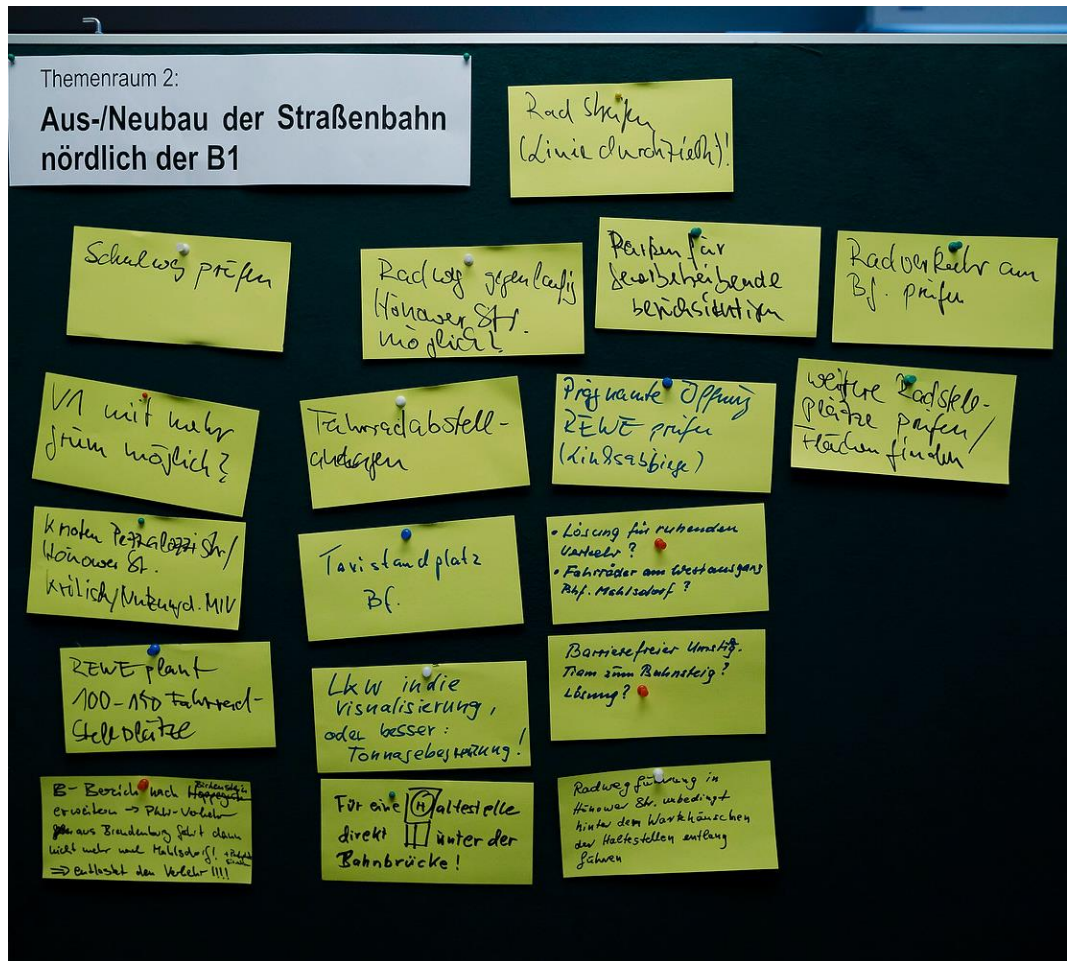 Themenraum 2:
Aus-/Neubau der Straßenbahn
nördlich der B1
Radstreifen
(Linie durchzieh)!
Schulweg prüfen
Radweg gegenläufig
Hönower Str.
möglich?
für
Gewerbetreibende
berücksichtigen
Radverkehr am
Bf. prüfen
V1 mit mehr
grün möglich?
Fahrradabstell-
anlagen
Prägnante Öffnung
REWE prüfen
(Linksabbieger)
weitere Radstell-
plätze prüfen/
Flächen finden
Knoten Str/
Hönower St.
kritisch/Nutzung d. MIV
Taxistandplatz
Bf.
• Lösung für ruhenden
Verkehr?
• Fahrräder am Westausgang
Bhf. Mahlsdorf?
REWE plant
100-150 Fahrrad-
Stellplätze
LKW in die
Visualisierung,
oder besser:
Tonnagebegrenzung!
Barrierefreier Umstig.
Tram zum Bahnsteig?
Lösung?
B-Bereich nach Birkenstein
erweitern → PKW-Verkehr
aus Brandenburg fährt dann
nicht mehr nach Mahlsdorf!
⇒ entlastet den Verkehr!!!!
Für eine Haltestelle
direkt unter der
Bahnbrücke!
Radwegführung in
Hönower Str. unbedingt
hinter dem Wartehäuschen
der Haltestellen entlang
führen